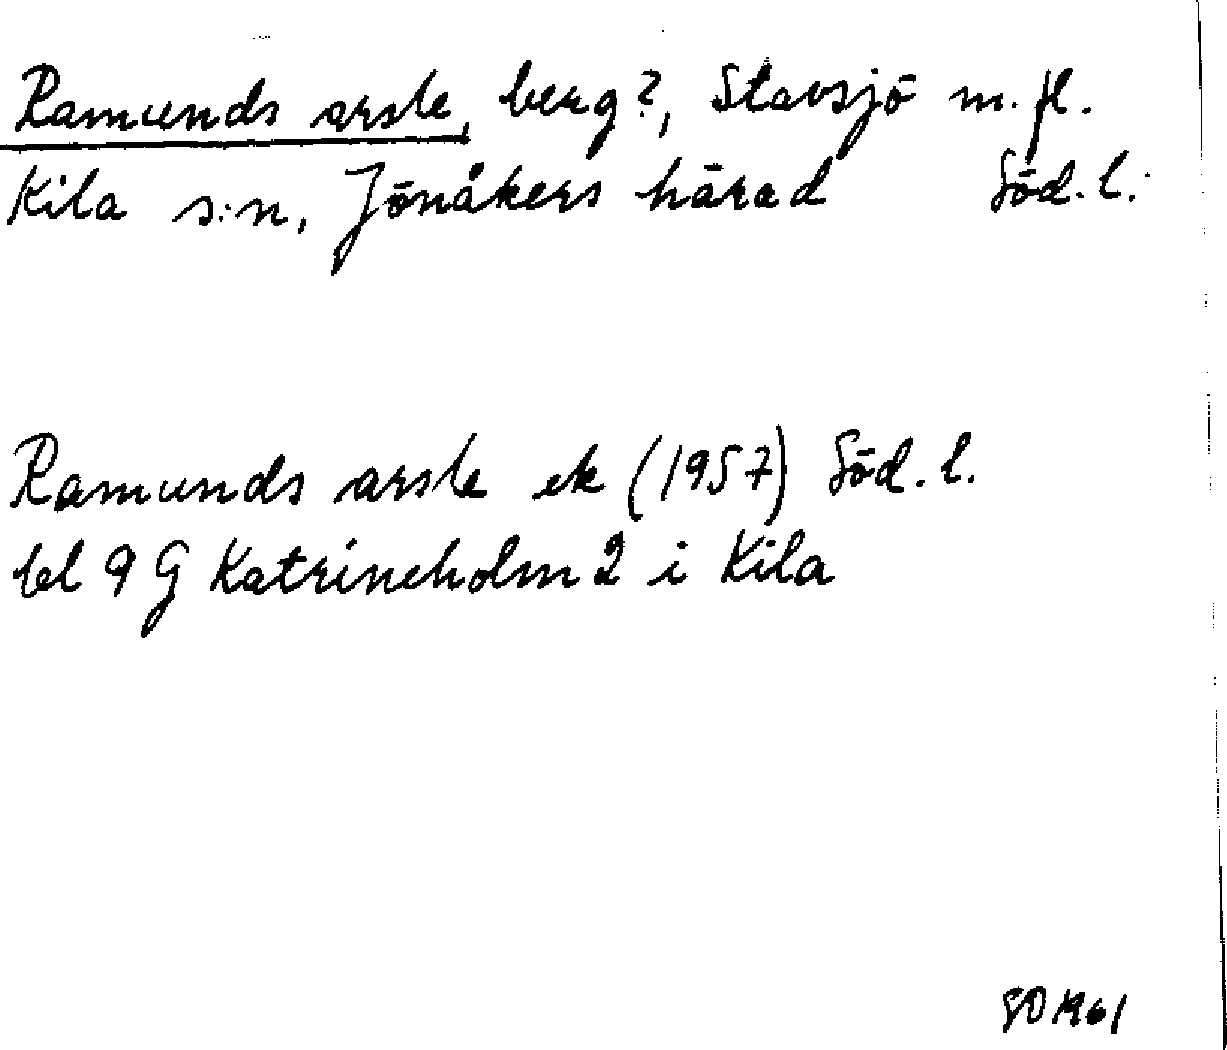 Ramunds arsle, berg?, Stavsjö m.fl.
Kila s:n, Jönåkers härad Söd. l.
Ramunds arsle ek (1957) Söd. l.
bl 9 G Katrineholm 2 i Kila
1961